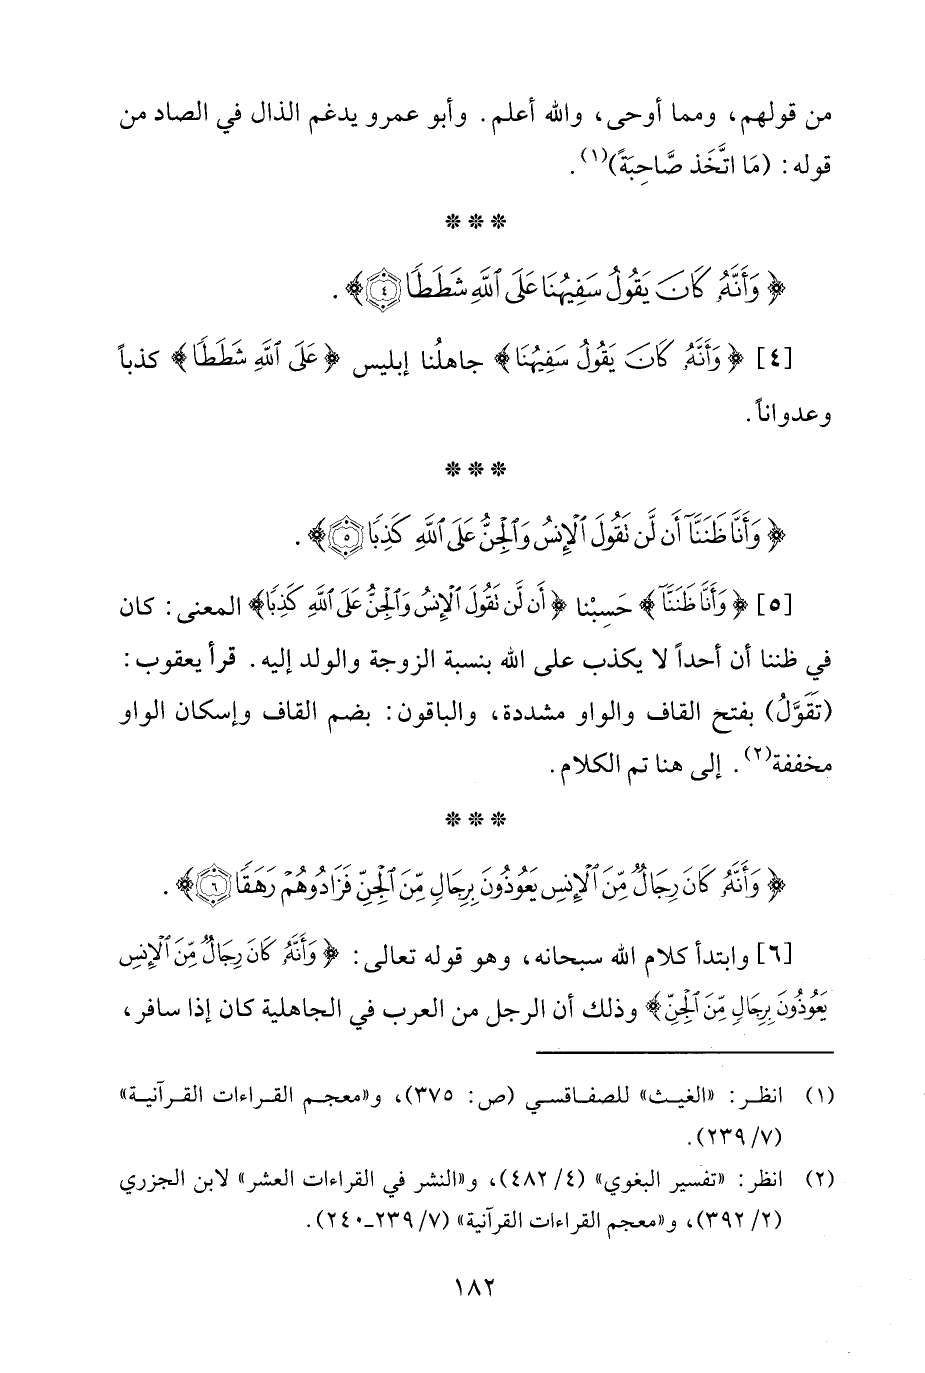 من قولهم، ومما أوحى، والله أعلم. وأبو عمرو يدغم الذال في الصاد من
قوله: (مَا اتَّخَذ صَّاحِبَةً)(١).
***
﴿ وَأَنَّهُۥ كَانَ يَقُولُ سَفِيهُنَا عَلَى ٱللَّهِ شَطَطًا ٤﴾.
[٤] ﴿ وَأَنَّهُۥ كَانَ يَقُولُ سَفِيهُنَا﴾ جاهلُنا إبليس ﴿ عَلَى ٱللَّهِ شَطَطًا ﴾ كذباً
وعدواناً.
***
﴿ وَأَنَّا ظَنَنَّآ أَن لَّن نَقُولَ ٱلْإِنسُ وَٱلْجِنُّ عَلَى ٱللَّهِ كَذِبًا ٥﴾.
[٥] ﴿ وَأَنَّا ظَنَنَّآ ﴾ حَسِبْنا ﴿ أَن لَّن نَقُولَ ٱلْإِنسُ وَٱلْجِنُّ عَلَى ٱللَّهِ كَذِبًا﴾ المعنى: كان
في ظننا أن أحداً لا يكذب على الله بنسبة الزوجة والولد إليه. قرأ يعقوب:
(تَقَوَّلُ) بفتح القاف والواو مشددة، والباقون: بضم القاف وإسكان الواو
مخففة(٢). إلى هنا تم الكلام.
***
﴿ وَأَنَّهُۥ كَانَ رِجَالٌ مِّنَ ٱلْإِنسِ يَعُوذُونَ بِرِجَالٍ مِّنَ ٱلْجِنِّ فَزَادُوهُمْ رَهَقًا ٦﴾.
[٦] وابتدأ كلام الله سبحانه، وهو قوله تعالى: ﴿ وَأَنَّهُۥ كَانَ رِجَالٌ مِّنَ ٱلْإِنسِ
يَعُوذُونَ بِرِجَالٍ مِّنَ ٱلْجِنِّ ﴾ وذلك أن الرجل من العرب في الجاهلية كان إذا سافر،
(١) انظر: «الغيث» للصفاقسي (ص: ٣٧٥)، و«معجم القراءات القرآنية»
(٧/ ٢٣٩).
(٢) انظر: «تفسير البغوي» (٤/ ٤٨٢)، و«النشر في القراءات العشر» لابن الجزري
(٢/ ٣٩٢)، و«معجم القراءات القرآنية» (٧/ ٢٣٩ـ٢٤٠).
١٨٢